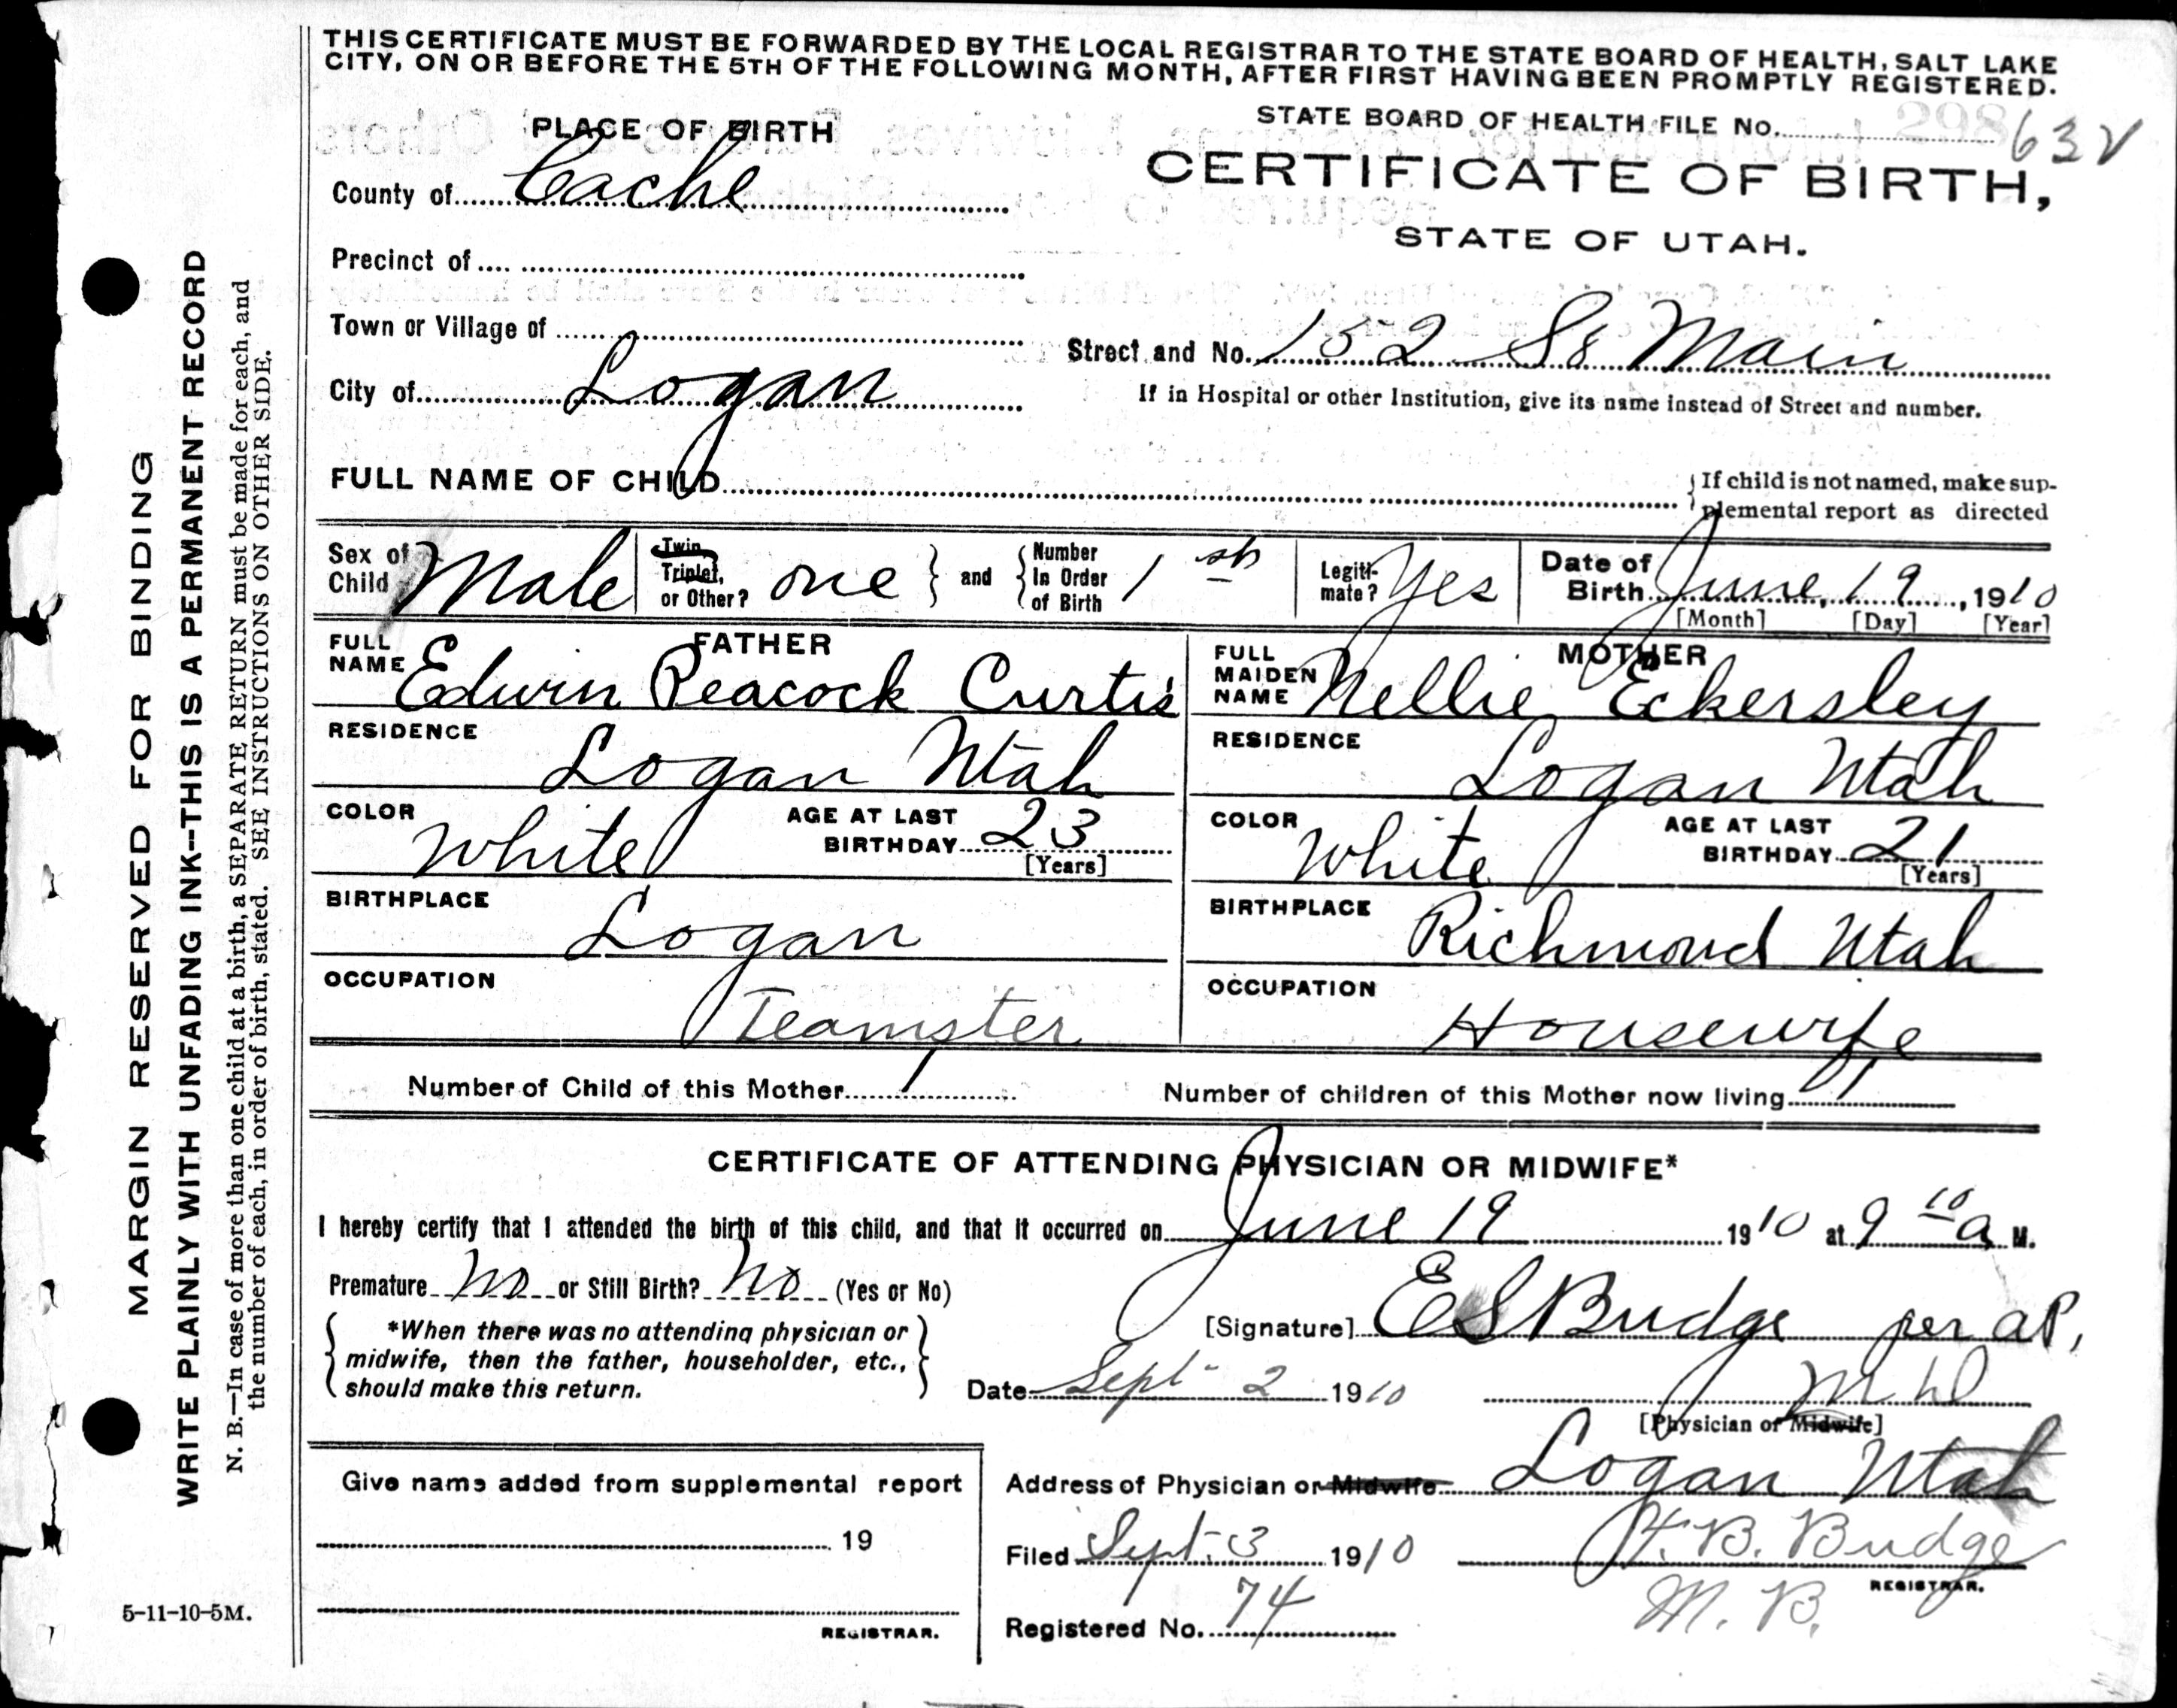 THIS CERTIFICATE MUST BE FORWARDED BY THE LOCAL REGISTRAR TO THE STATE BOARD OF HEALTH, SALT LAKE
CITY, ON OR BEFORE THE 5TH OF THE FOLLOWING MONTH, AFTER FIRST HAVING BEEN PROMPTLY REGISTERED.
STATE BOARD OF HEALTH FILE No. 298 632
PLACE OF BIRTH
CERTIFICATE OF BIRTH,
County of Cache
STATE OF UTAH.
Precinct of
Town or Village of
Street and No. 152 So Main
City of Logan
If in Hospital or other Institution, give its name instead of Street and number.
FULL NAME OF CHILD
If child is not named, make sup-
plemental report as directed
Sex of Child Male
Twin, Triplet, or Other? one
and
Number In Order of Birth 1st
Legiti-mate? Yes
Date of Birth June, 19, 1910
[Month] [Day] [Year]
FATHER
FULL NAME Edwin Peacock Curtis
RESIDENCE
Logan Utah
COLOR White
AGE AT LAST BIRTHDAY 23
[Years]
BIRTHPLACE
Logan
OCCUPATION
Teamster
MOTHER
FULL MAIDEN NAME Nellie Eckersley
RESIDENCE
Logan Utah
COLOR White
AGE AT LAST BIRTHDAY 21
[Years]
BIRTHPLACE
Richmond Utah
OCCUPATION
Housewife
Number of Child of this Mother 1
Number of children of this Mother now living 1
CERTIFICATE OF ATTENDING PHYSICIAN OR MIDWIFE*
I hereby certify that I attended the birth of this child, and that it occurred on June 19 1910 at 9 10 a M.
Premature No or Still Birth? No (Yes or No)
*When there was no attending physician or
midwife, then the father, householder, etc.,
should make this return.
[Signature] E S Budge per aP,
Date Sept 2 1910
M D
[Physician or Midwife]
Address of Physician or Midwife Logan Utah
Give name added from supplemental report
19
REGISTRAR.
Filed Sept. 3 1910
H. B. Budge
REGISTRAR.
M. B.
Registered No. 74
MARGIN RESERVED FOR BINDING
WRITE PLAINLY WITH UNFADING INK--THIS IS A PERMANENT RECORD
N. B.—In case of more than one child at a birth, a SEPARATE RETURN must be made for each, and
the number of each, in order of birth, stated. SEE INSTRUCTIONS ON OTHER SIDE.
5-11-10-5M.